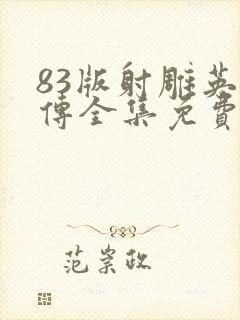 83版射雕英
傳全集免費
范崇政